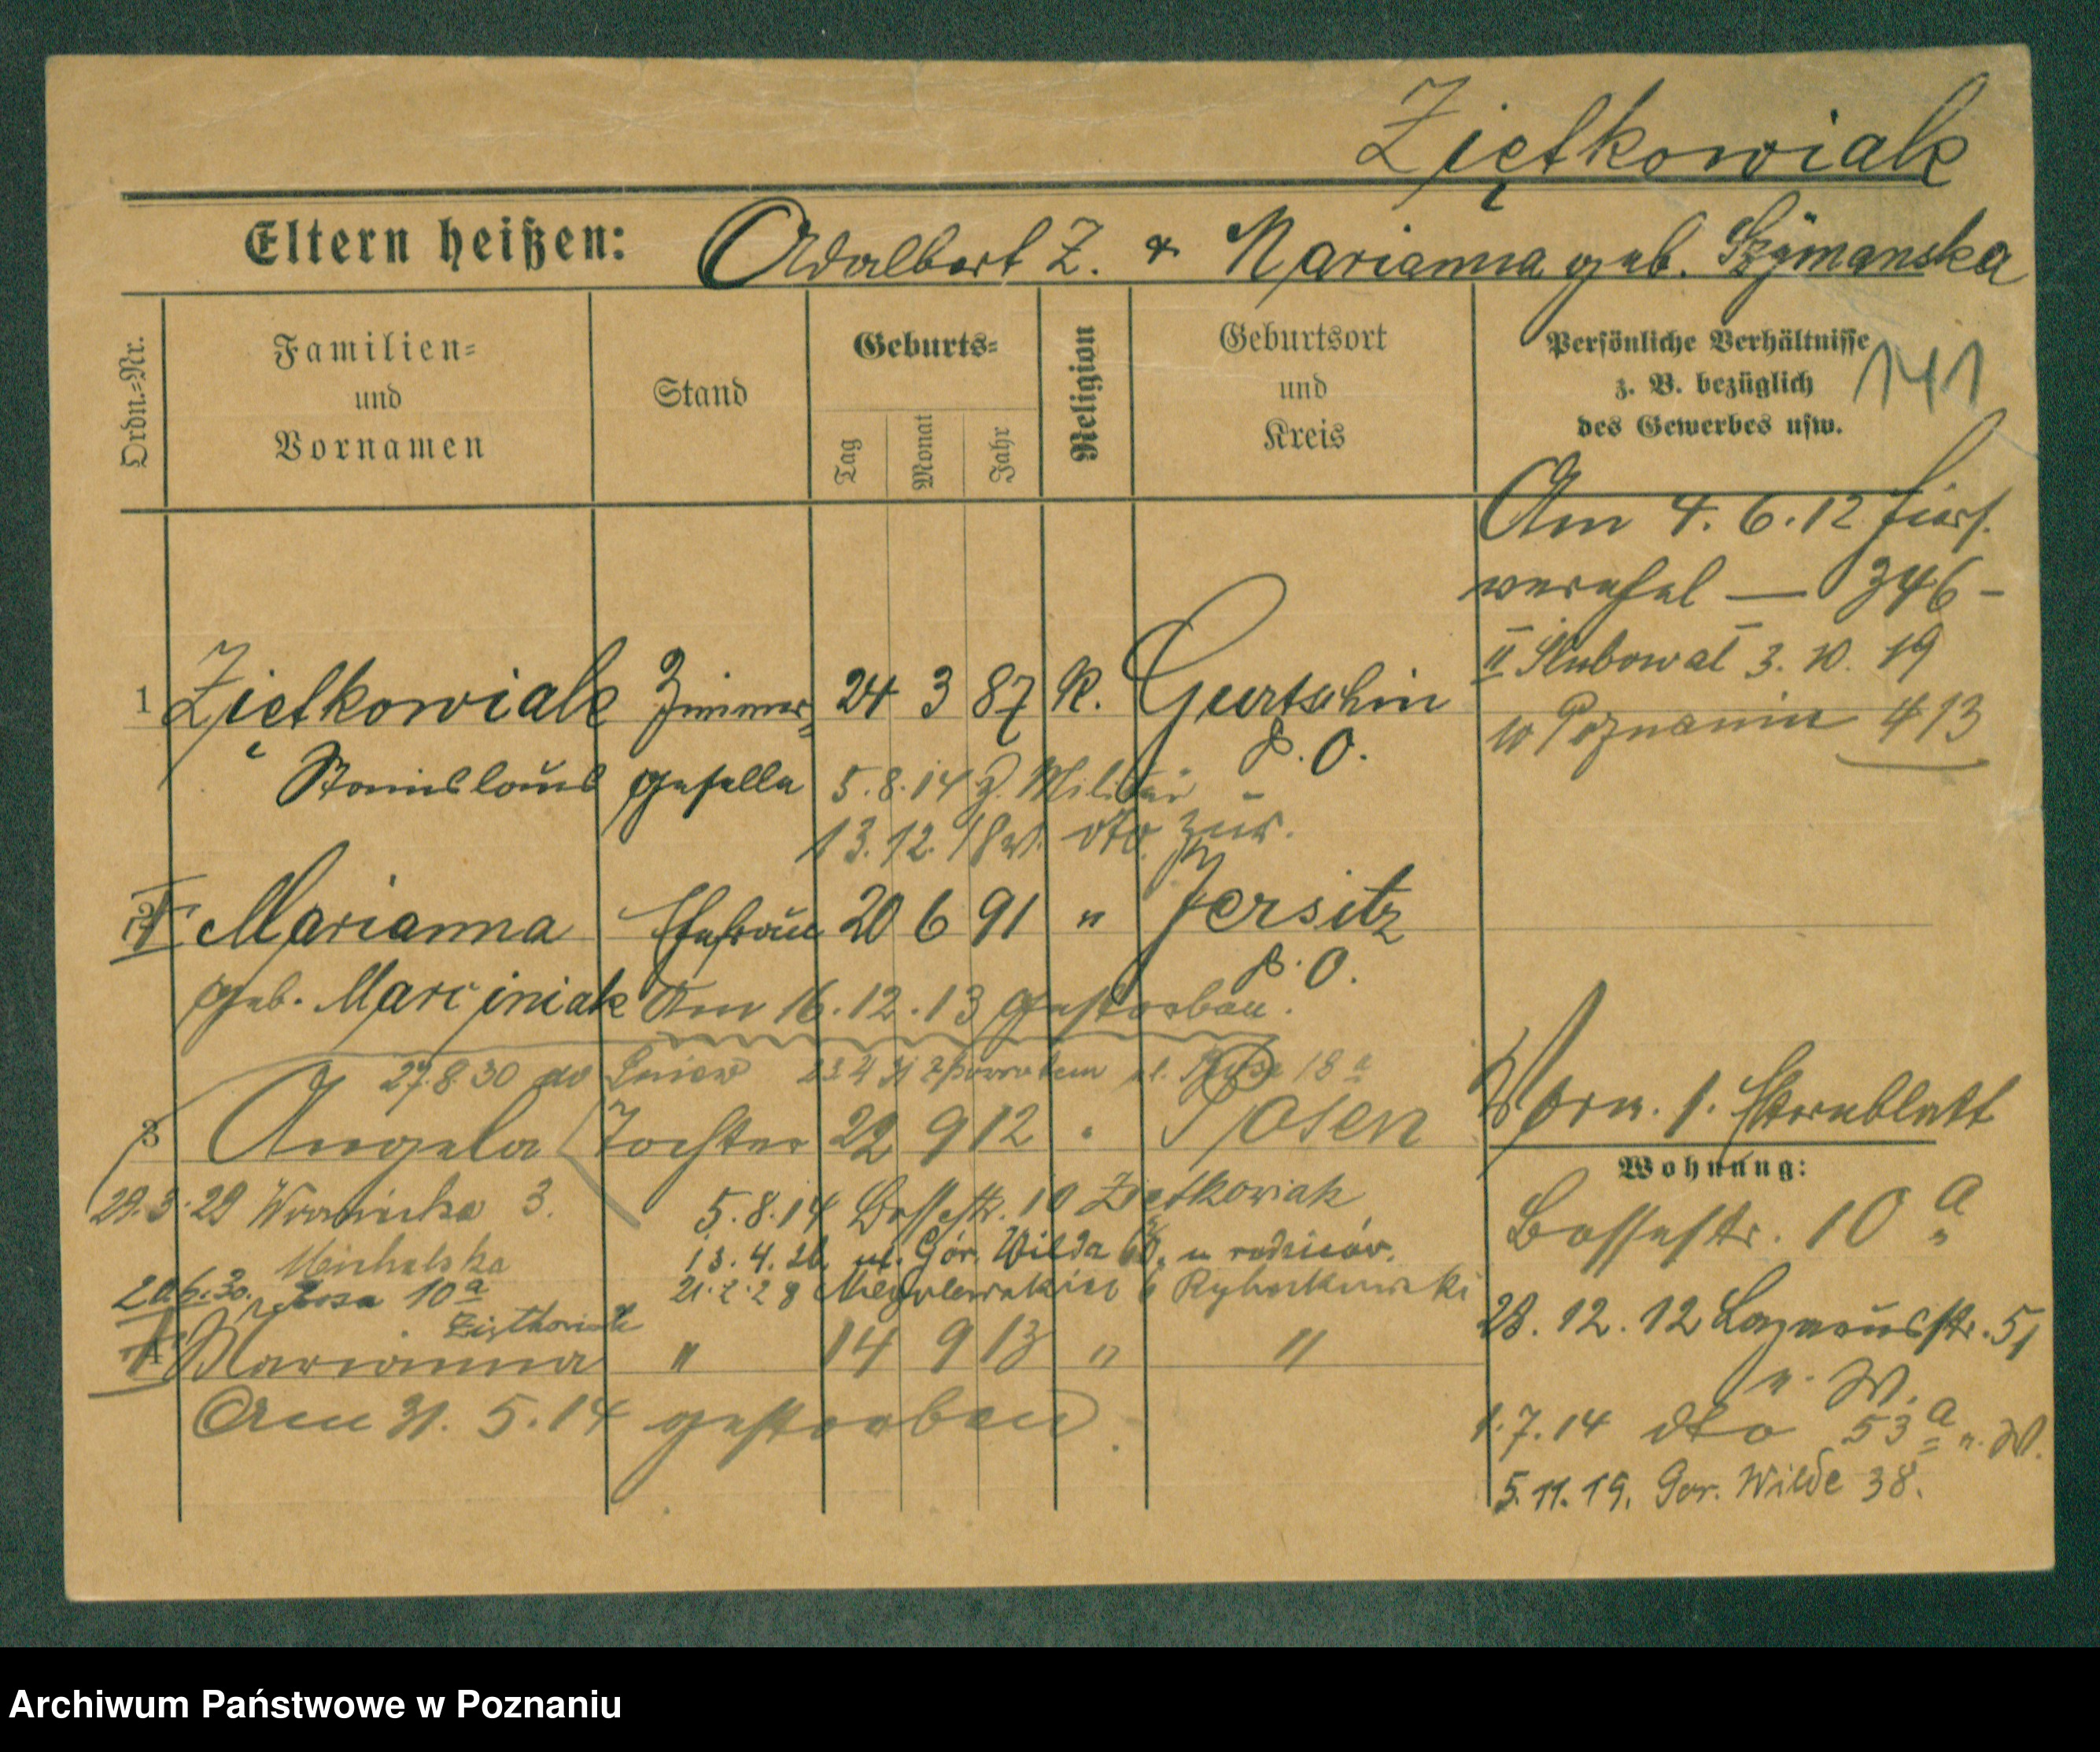 Ziętkowiak
Eltern heißen: Adalbert Z. & Marianna geb. Szymanska
Ordn.-Nr.
Familien- und Vornamen
Stand
Geburts-
Tag
Monat
Jahr
Religion
Geburtsort und Kreis
Persönliche Verhältnisse z. B. bezüglich des Gewerbes usw.
141
Am 4.6.12 hier
verehel — 346 –
II Ślubował 3. 10. 19
w Poznaniu 413
1 Ziętkowiak Zimmer- 24 3 87 K. Gurtschin
Stanislaus geselle P. O.
5.8.14 z. Militär
13.12.18 v. dto. zur.
2 Marianna Ehefrau 20 6 91 " Jersitz
geb. Marciniak P. O.
Am 16.12.13 gestorben.
27.8.30 do 23.4.31 z powrotem ul. 18 a
3 Angela Tochter 22 9 12 " Posen
29.3.29 3.
Michalska
20.6.30. Rosa 10 a
Ziętkowiak
5.8.14 Bosse str. 10 Ziętkowiak
13.4.26. ul. Gór. Wilda u rodziców.
21.2.28 6
4 Marianna " 14 9 13 " "
Am 31. 5. 14 gestorben.
Vorn. 1. Sterneblatt
Wohnung:
Bossestr. 10 a
28. 12. 12 Lazarusstr. 51
n. W.
1.7.14 dto 53 a n. W.
5.11.19. Gor. Wilde 38.
Archiwum Państwowe w Poznaniu